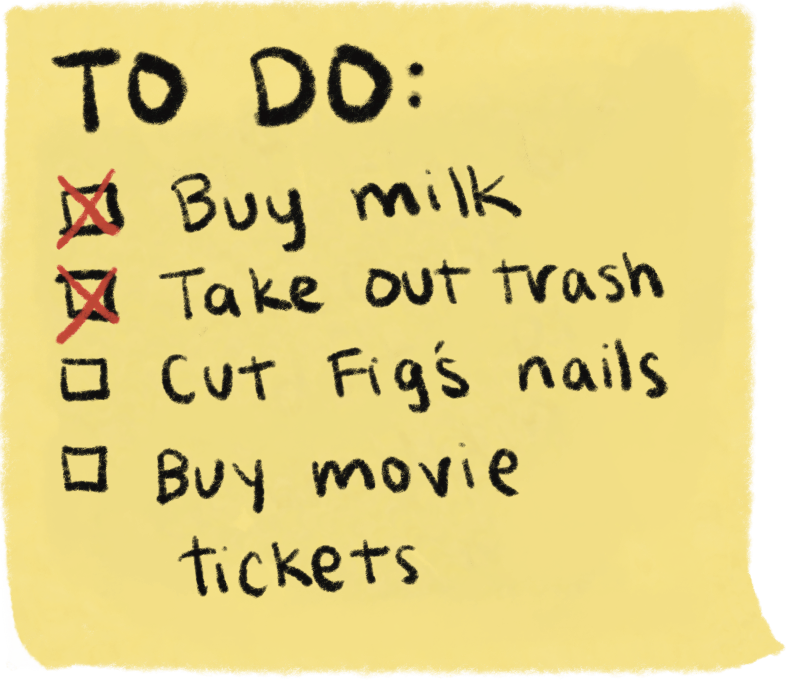 TO DO:
Buy milk
Take out trash
Cut Fig's nails
Buy movie
tickets